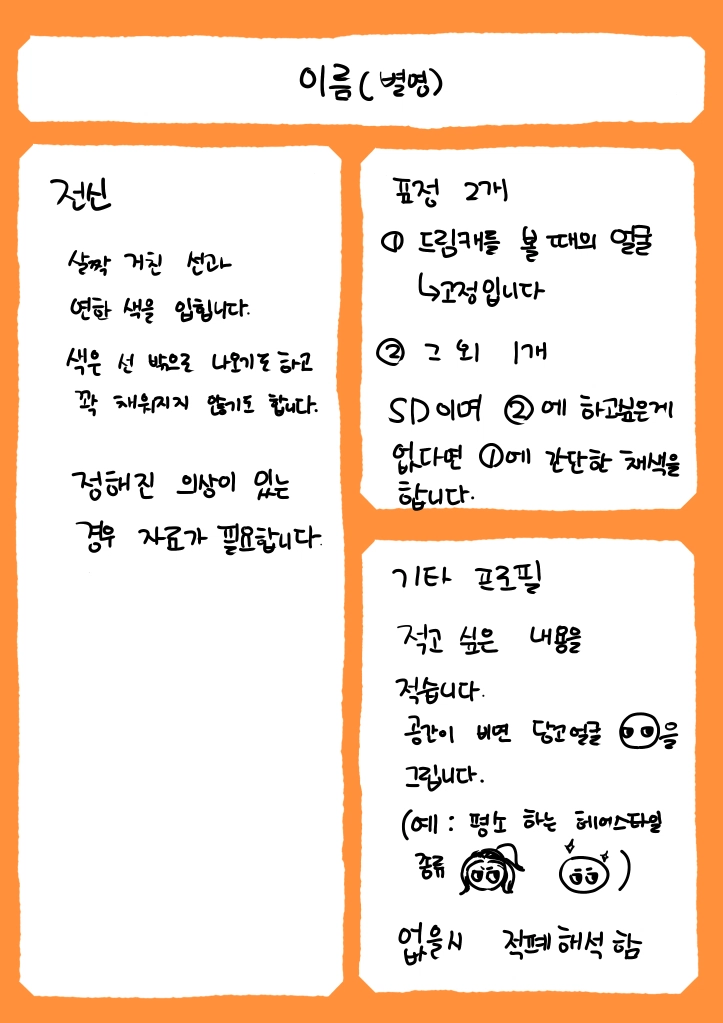 이름(별명)
전신
살짝 거친 선과
연한 색을 입힙니다.
색은 선 밖으로 나오기도 하고
꽉 채워지지 않기도 합니다.
정해진 의상이 있는
경우 자료가 필요합니다.
표정 2개
① 드림캐를 볼 때의 얼굴
↳고정입니다
② 그 외 1개
SD이며 ②에 하고싶은게
없다면 ①에 간단한 채색을
합니다.
기타 프로필
적고 싶은 내용을
적습니다.
공간이 비면 당고얼굴 을
그립니다.
(예: 평소 하는 헤어스타일
종류 )
없을시 적폐해석함